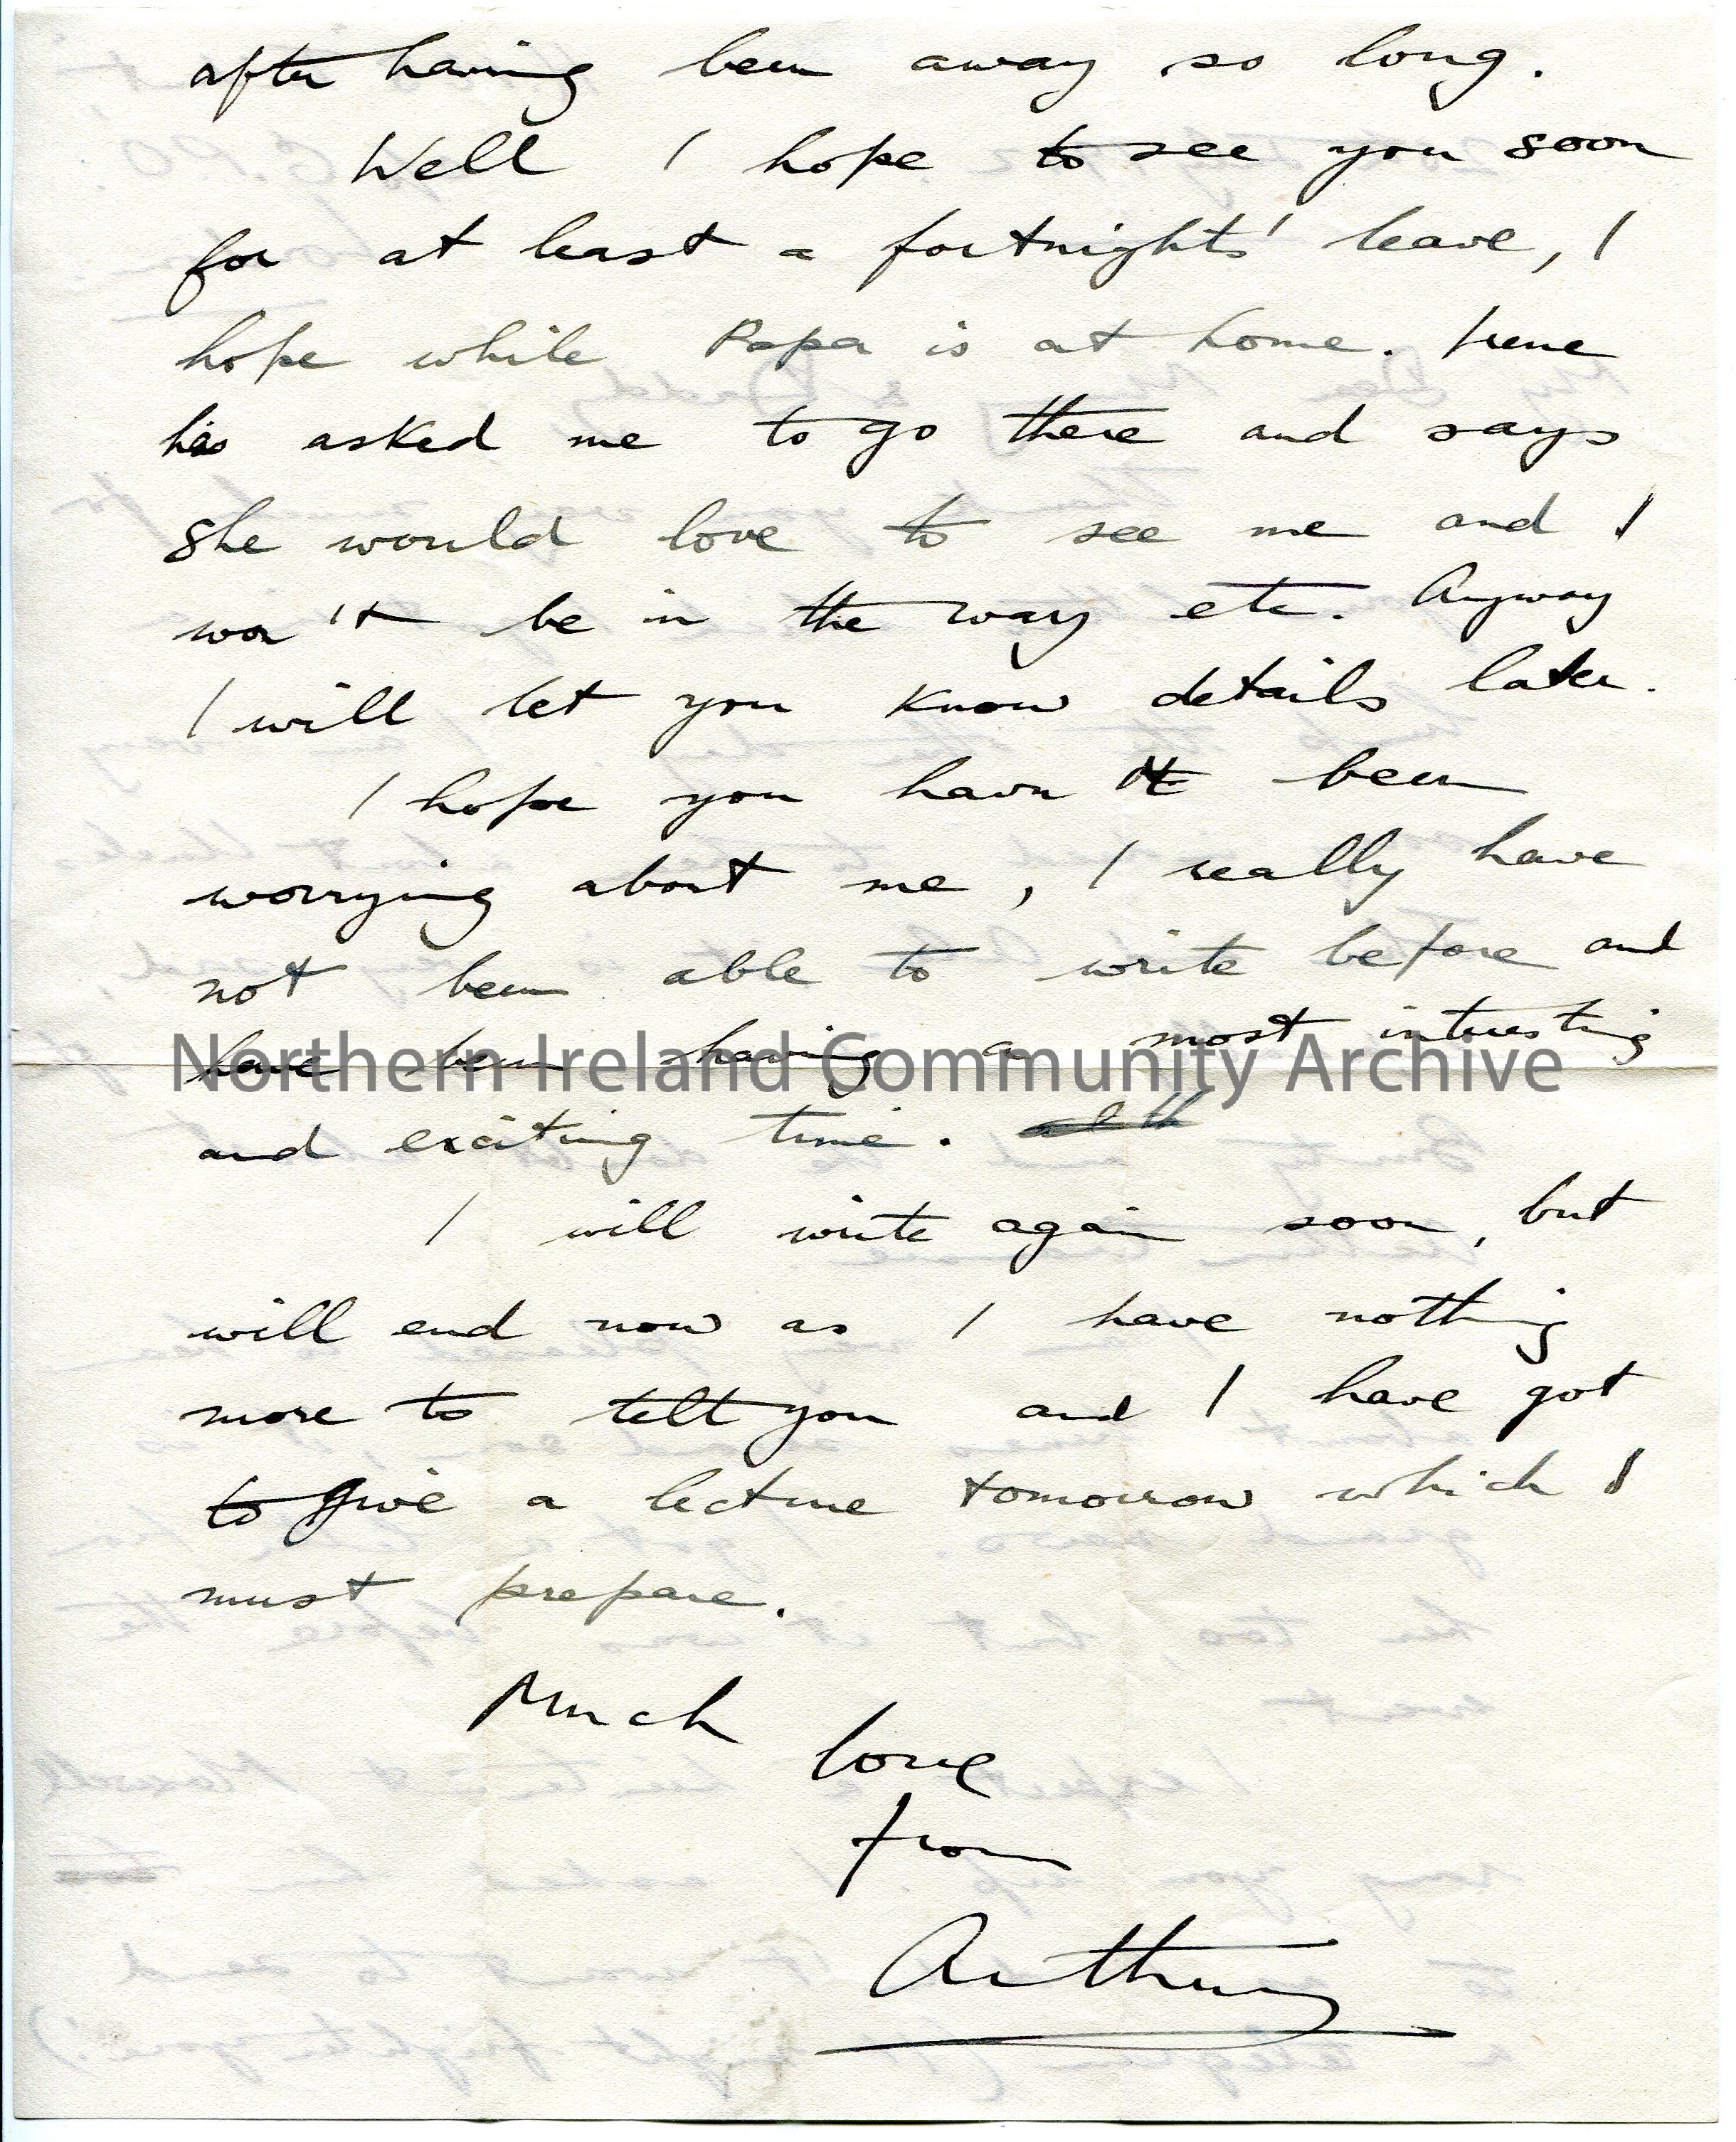 after having been away so long.
Well I hope to see you soon
for at least a fortnights' leave, I
hope while Papa is at home. Irene
has asked me to go there and says
she would love to see me and I
won't be in the way etc. Anyway
I will let you know details later.
I hope you havn't been
worrying about me, I really have
not been able to write before and
have been having a most interesting
Northern Ireland Community Archive
and exciting time.
I will write again soon, but
will end now as I have nothing
more to tell you and I have got
to give a lecture tomorrow which I
must prepare.
Much
love
from
Arthur